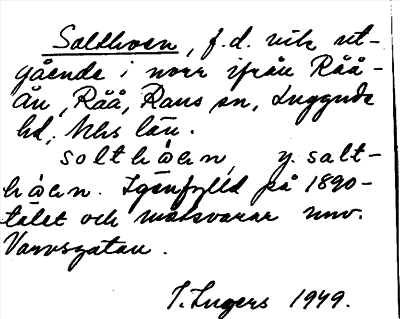 Salthoen, f.d. vik ut-
gående i norr ifrån Råå-
ån, Råå, Raus sn, Luggude
hd, Mhs län.
salthåen, y. salt-
håen. Igenfylld på 1890-
talet och motsvarar nuv.
Varvsgatan.
I. Ingers 1949.